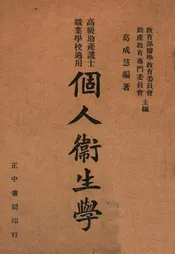 教育部醫學教育委員會
助產教育專門委員會
主編
葛成慧編著
高級助產護士
職業學校適用
個人衞生學
正中書局印行